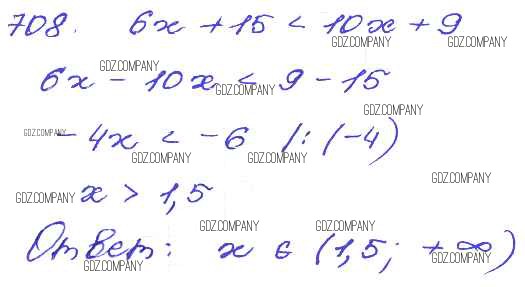 708. 6x + 15 < 10x + 9
GDZ.COMPANY GDZ.COMPANY
GDZ.COMPANY
6x - 10x < 9 - 15
GDZ.COMPANY
GDZ.COMPANY
GDZ.COMPANY
- 4x < - 6 /: (-4)
GDZ.COMPANY GDZ.COMPANY
GDZ.COMPANY
GDZ.COMPANY x > 1,5
GDZ.COMPANY GDZ.COMPANY
Ответ: x ∈ (1,5; +∞)
GDZ.COMPANY GDZ.COMPANY